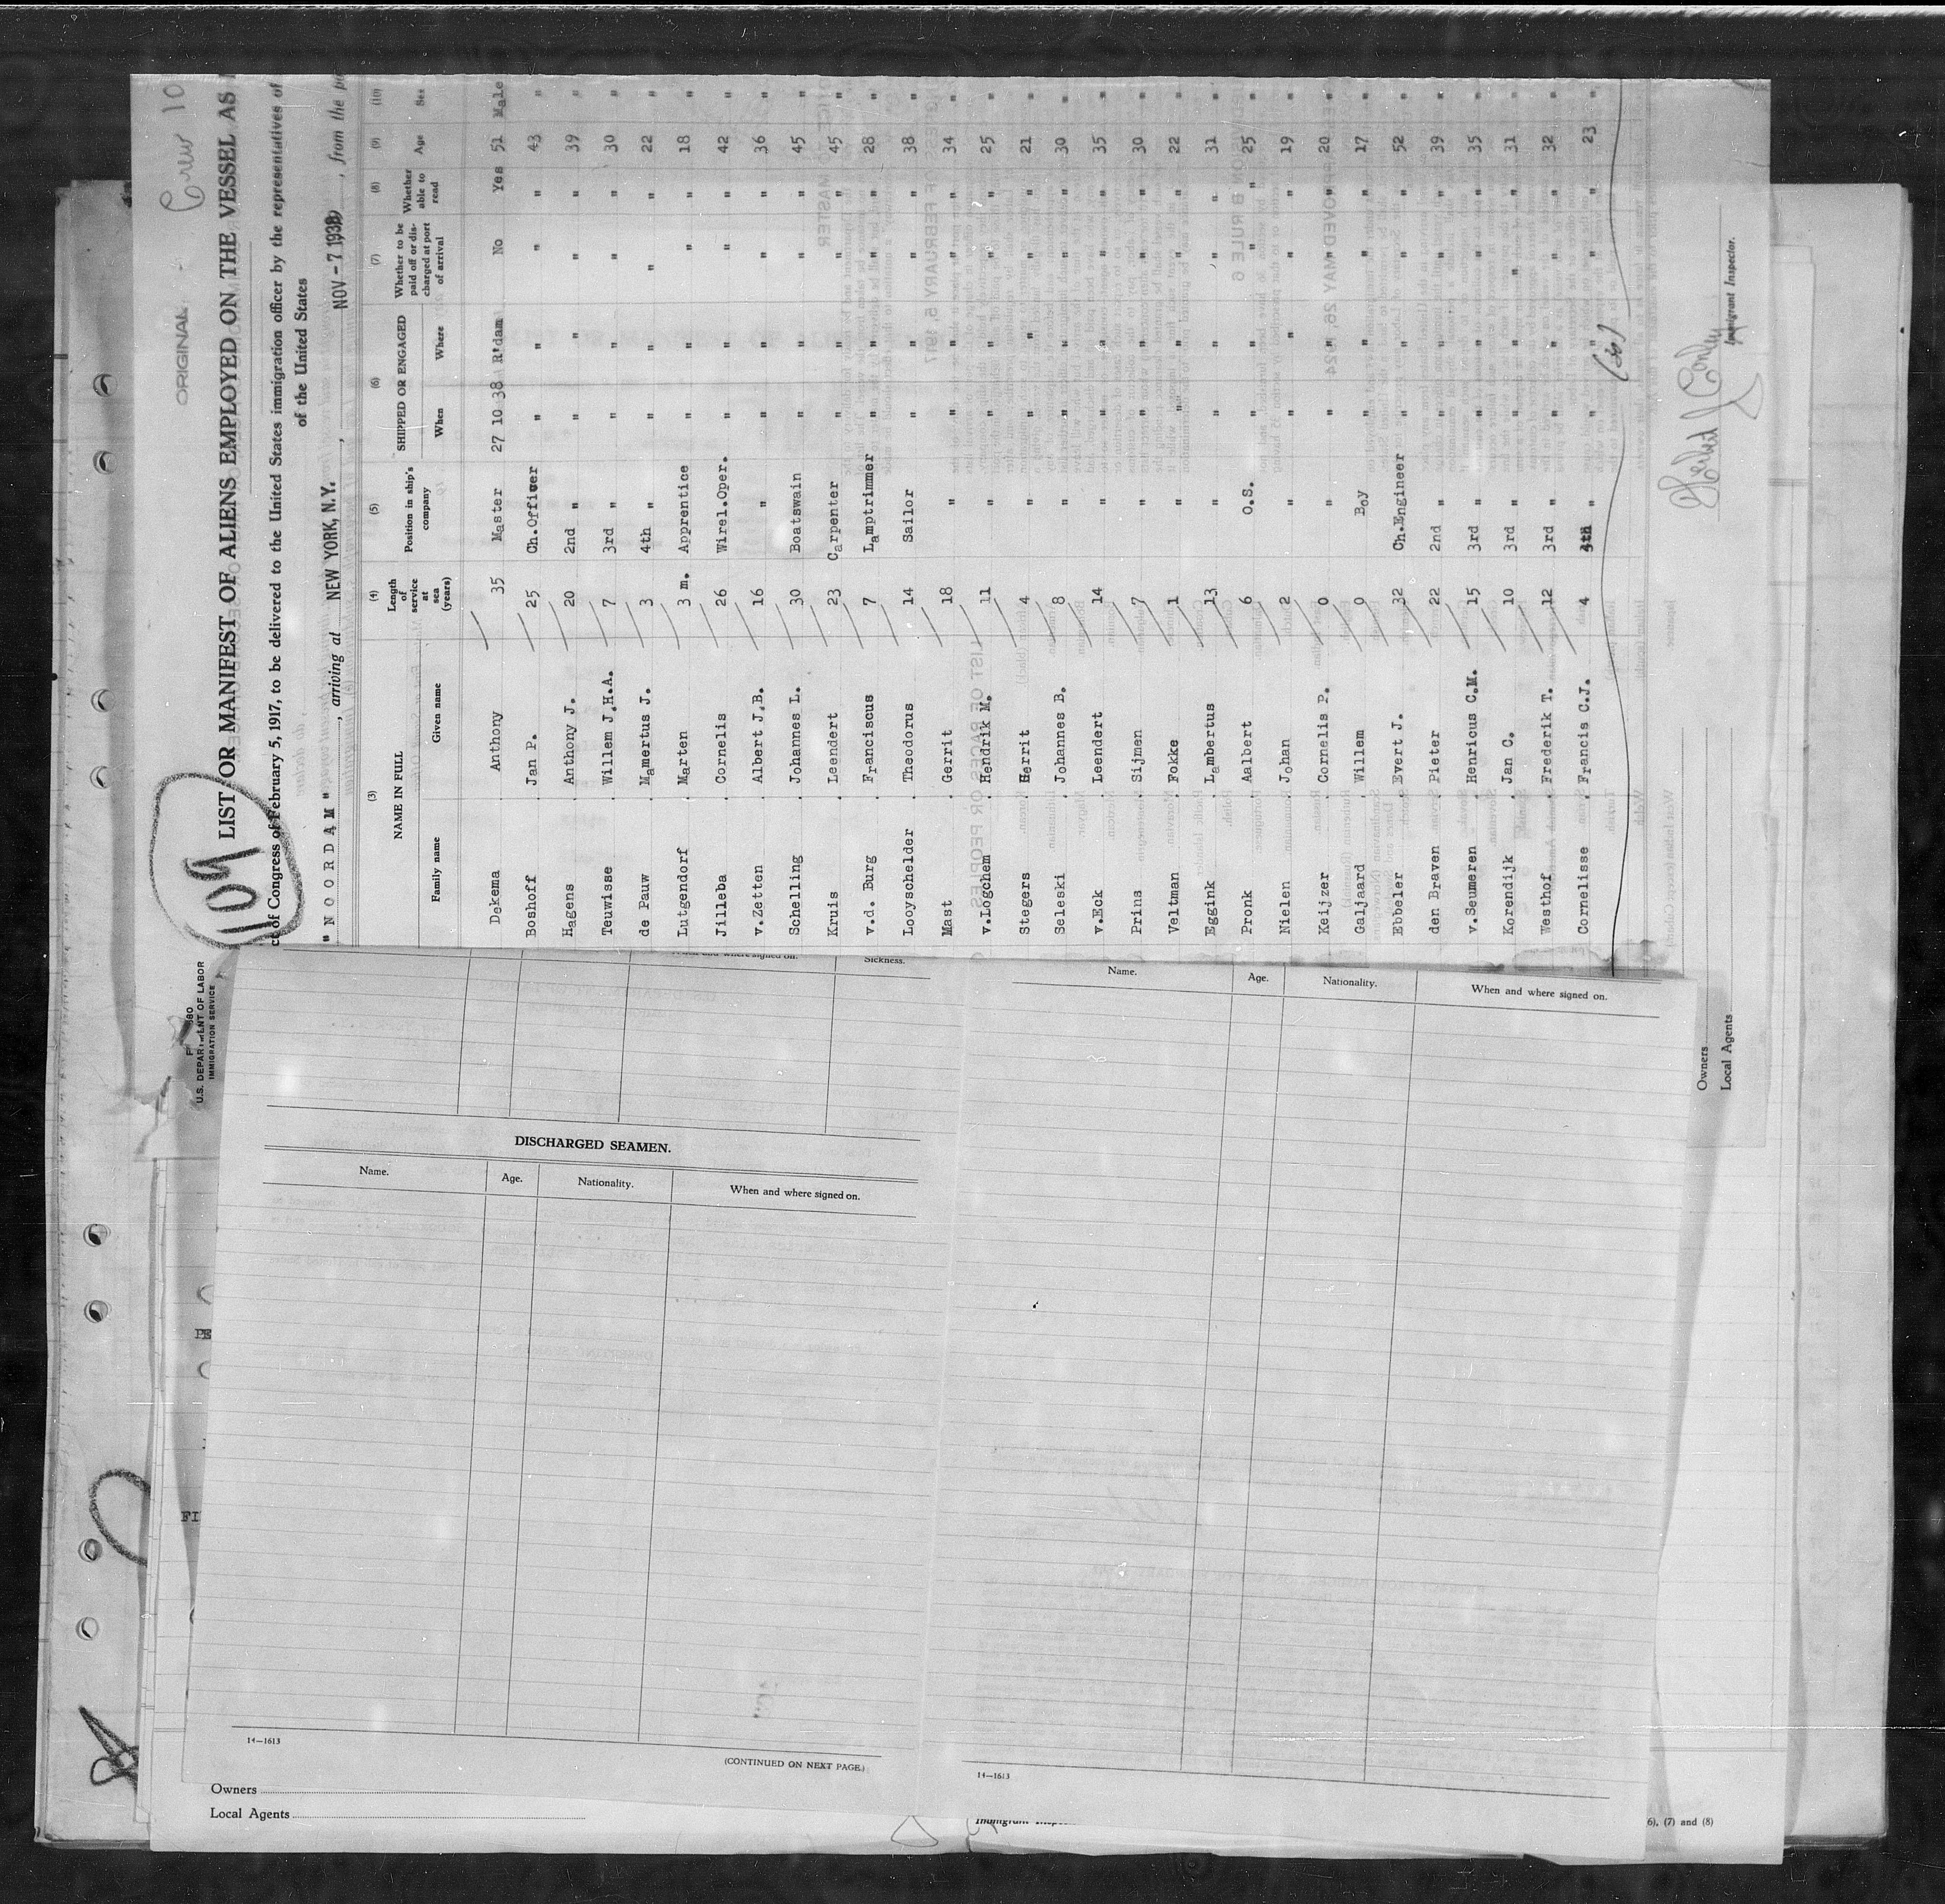 ORIGINAL
Crew 10
109
LIST OR MANIFEST OF ALIENS EMPLOYED ON THE VESSEL AS
of Congress of February 5, 1917, to be delivered to the United States immigration officer by the representatives of
of the United States
"NOORDAM", arriving at NEW YORK, N.Y., NOV - 7 1938, from the
(3) (4) (5) (6) (7) (8) (9) (10)
NAME IN FULL Length of service at sea (years) Position in ship's company SHIPPED OR ENGAGED Whether to be paid off or discharged at port of arrival Whether able to read Age Sex
Family name Given name When Where
Dekema Anthony 35 Master 27 10 38 R'dam No Yes 51 Male
Boshoff Jan P. 25 Ch.Officer " " " " 43 "
Hagens Anthony J. 20 2nd " " " " " 39 "
Teuwisse Willem J.H.A. 7 3rd " " " " " 30 "
de Pauw Mamertus J. 3 4th " " " " " 22 "
Lutgendorf Marten 3 m. Apprentice " " " " 18 "
Jilleba Cornelis 26 Wirel.Oper. " " " " 42 "
v.Zetten Albert J.B. 16 " " " " " 36 "
Schelling Johannes L. 30 Boatswain " " " " 45 "
Kruis Leendert 23 Carpenter " " " " 45 "
v.d. Burg Franciscus 7 Lamptrimmer " " " " 28 "
Looyschelder Theodorus 14 Sailor " " " " 38 "
Mast Gerrit 18 " " " " " 34 "
v.Logchem Hendrik M. 11 " " " " " 25 "
Stegers Gerrit 4 " " " " " 21 "
Seleski Johannes B. 8 " " " " " 30 "
v.Eck Leendert 14 " " " " " 35 "
Prins Sijmen 7 " " " " " 30 "
Veltman Fokke 1 " " " " " 22 "
Eggink Lambertus 13 " " " " " 31 "
Pronk Aalbert 6 O.S. " " " " 25 "
Nielen Johan 2 " " " " " 19 "
Keijzer Cornelis P. 0 " " " " " 20 "
Galjaard Willem 0 Boy " " " " 17 "
Ebbeler Evert J. 32 Ch.Engineer " " " " 52 "
den Braven Pieter 22 2nd " " " " " 39 "
v.Seumeren Henricus C.M. 15 3rd " " " " " 35 "
Korendijk Jan C. 10 3rd " " " " " 31 "
Westhof Frederik T. 12 3rd " " " " " 32 "
Cornelisse Francis C.J. 4 " " " " " 23 "
Immigrant Inspector.
U.S. DEPARTMENT OF LABOR
IMMIGRATION SERVICE
Owners
Local Agents
and where signed on. Sickness.
DISCHARGED SEAMEN.
Name. Age. Nationality. When and where signed on.
14—1613
(CONTINUED ON NEXT PAGE.)
Name. Age. Nationality. When and where signed on.
14—1613
Owners
Local Agents
(7) and (8)